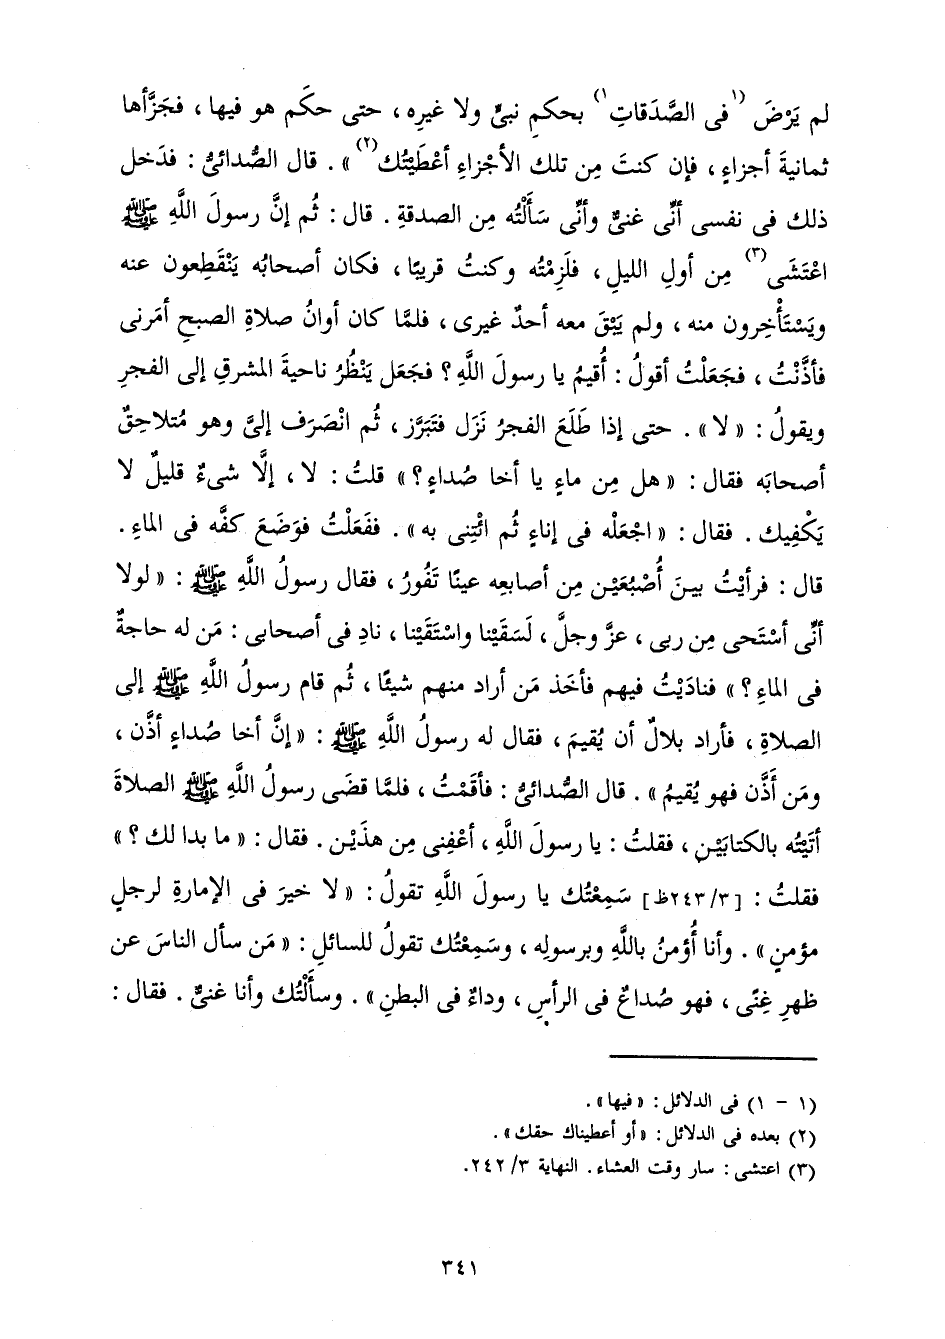 لم يَرْضَ (١فى الصَّدَقاتِ١) بحكمِ نبىٍّ ولا غيرِه ، حتى حكَم هو فيها ، فجَزَّأها
ثمانيةَ أجزاءٍ ، فإن كنتَ مِن تلك الأجْزاءِ أعْطَيْتُك(٢)» . قال الصُّدائىُّ : فدَخل
ذلك فى نفسى أنِّى غنىٌّ وأنِّى سَأَلْتُه مِن الصدقةِ . قال : ثُم إنَّ رسولَ اللَّهِ ﷺ
اعْتَشَى(٣) مِن أولِ الليلِ ، فلَزِمْتُه وكنتُ قريبًا ، فكان أصحابُه يَنْقَطِعون عنه
ويَسْتَأْخِرون منه ، ولم يَبْقَ معه أحدٌ غيرى ، فلمَّا كان أوانُ صلاةِ الصبحِ أمَرنى
فأذَّنْتُ ، فجَعَلْتُ أقولُ : أُقيمُ يا رسولَ اللَّهِ ؟ فجَعَل يَنْظُرُ ناحيةَ المشرقِ إلى الفجرِ
ويقولُ : «لا» . حتى إذا طَلَعَ الفجرُ نَزَل فتَبَرَّز ، ثُم انْصَرَف إلىَّ وهو مُتلاحِقٌ
أصحابَه فقال : «هل مِن ماءٍ يا أخا صُداءٍ ؟» قلتُ : لا ، إلَّا شىءٌ قليلٌ لا
يَكْفِيك . فقال : «اجْعَلْه فى إناءٍ ثُم ائْتِنى به» . ففَعَلْتُ فوَضَعَ كفَّه فى الماءِ .
قال : فرأيْتُ بينَ أُصْبُعَيْن مِن أصابعِه عينًا تَفُورُ ، فقال رسولُ اللَّهِ ﷺ : «لولا
أنِّى أسْتَحى مِن ربى ، عزَّ وجلَّ ، لَسَقَيْنا واسْتَقَيْنا ، نادِ فى أصحابى : مَن له حاجةٌ
فى الماءِ ؟» فنادَيْتُ فيهم فأخَذ مَن أراد منهم شيئًا ، ثُم قام رسولُ اللَّهِ ﷺ إلى
الصلاةِ ، فأراد بلالٌ أن يُقيمَ ، فقال له رسولُ اللَّهِ ﷺ : «إنَّ أخا صُداءٍ أذَّن ،
ومَن أَذَّن فهو يُقيمُ» . قال الصُّدائىُّ : فأقَمْتُ ، فلمَّا قضَى رسولُ اللَّهِ ﷺ الصلاةَ
أتَيْتُه بالكتابَيْنِ ، فقلتُ : يا رسولَ اللَّهِ ، أعْفِنى مِن هذَيْن . فقال : «ما بدا لك ؟»
فقلتُ : [٢٤٣/٣ظ] سَمِعْتُك يا رسولَ اللَّهِ تقولُ : «لا خيرَ فى الإمارةِ لرجلٍ
مؤمنٍ» . وأنا أُؤمنُ باللَّهِ وبرسولِه ، وسَمِعْتُك تقولُ للسائلِ : «مَن سأل الناسَ عن
ظهرِ غِنًى ، فهو صُداعٌ فى الرأسِ ، وداءٌ فى البطنِ» . وسأَلْتُك وأنا غنىٌّ . فقال :
(١ - ١) فى الدلائل : «فيها» .
(٢) بعده فى الدلائل : «أو أعطيناك حقك» .
(٣) اعتشى : سار وقت العشاء . النهاية ٢٤٢/٣.
٣٤١